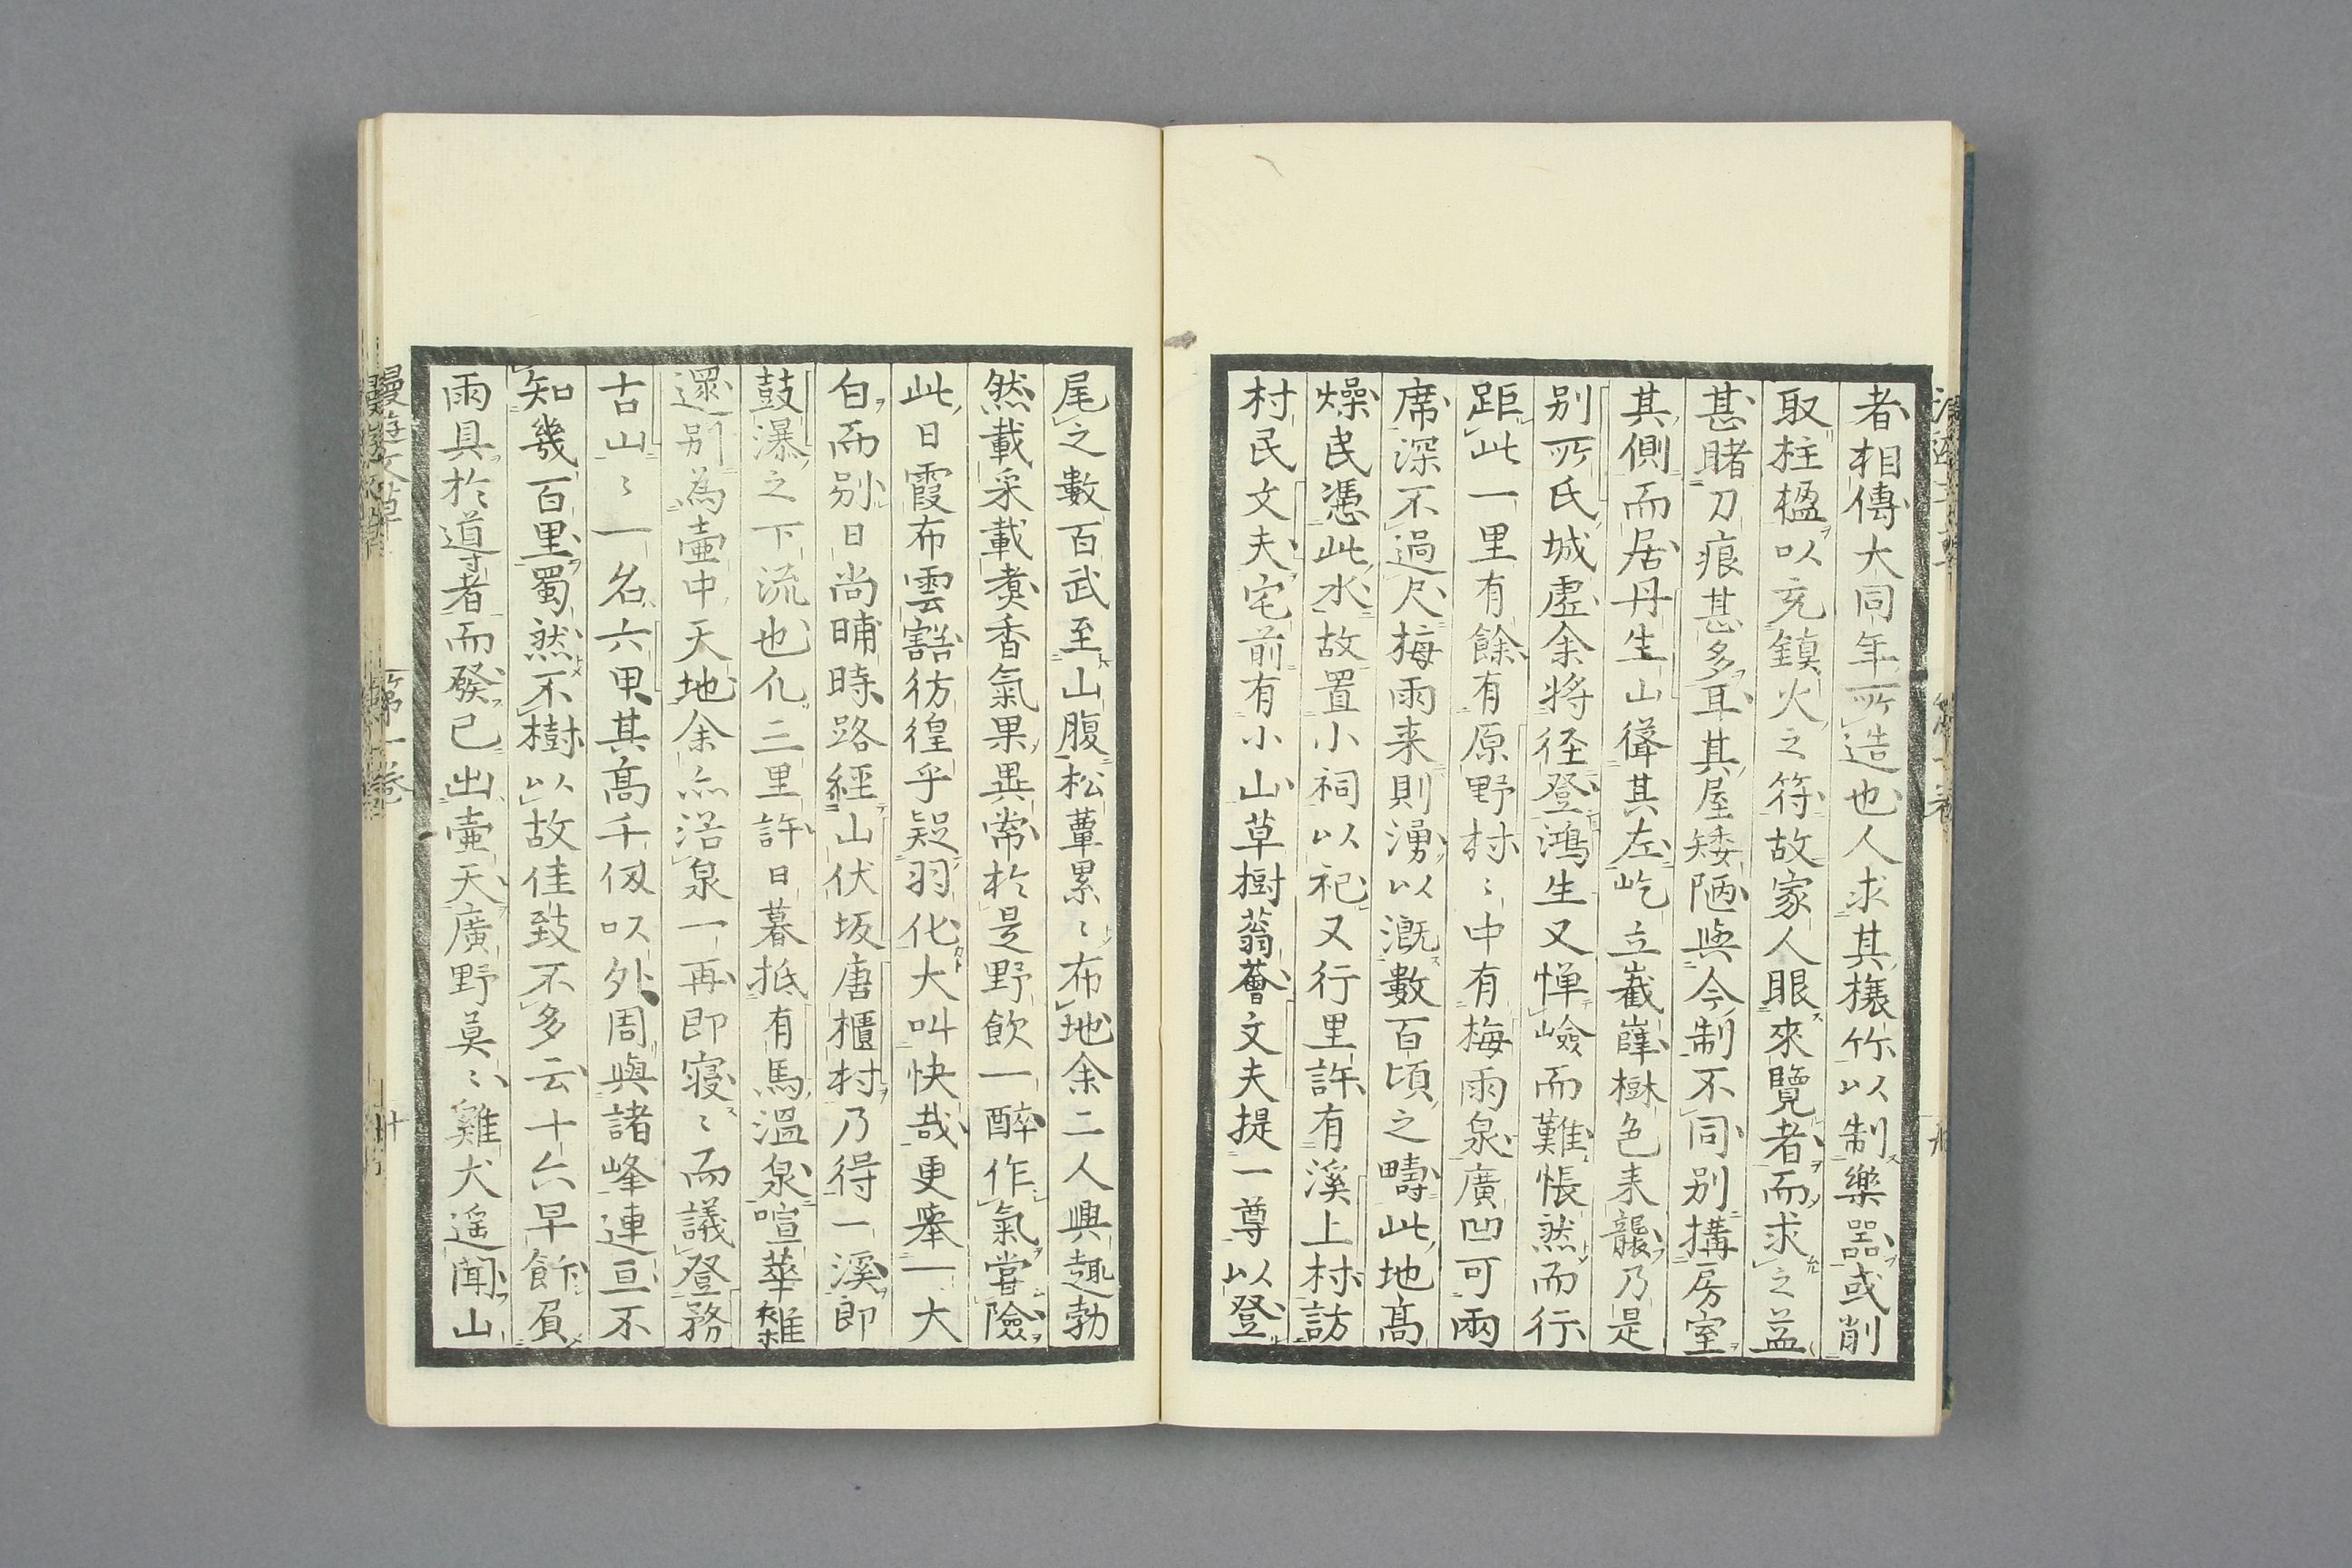 者相傳大同年所造也人求其榱竹以制樂器或削
取柱楹以充鎮火之符故家人眼來覽者而求之益
甚睹刀痕甚多耳其屋矮陋與今制不同别搆房室
其側而居丹生山聳其左屹立巀嶭樹色来襲乃是
别所氏城虛余將径登鴻生又憚嶮而難悵然而行
距此一里有餘有原野村〻中有梅雨泉廣凹可兩
席深不過尺梅雨来則湧以漑數百頃之疇此地髙
燥民憑此水故置小祠以祀又行里許有溪上村訪
村民文夫宅前有小山草樹蓊薈文夫提一尊以登
尾之數百武至山腹松蕈累〻布地余二人興趣勃
然載采載煑香氣果異常於是野飲一醉作氣嘗險
此日霞布雲豁彷徨乎疑羽化大叫快哉更舉一大
白而别日尚晡時路經山伏坂唐櫃村乃得一溪即
鼓瀑之下流也凢三里許日暮抵有馬溫泉喧華雜
還别為壷中天地余亦浴泉一再即寝〻而議登務
古山〻一名六甲其髙千仭以外周與諸峰連亘不
知幾百里蜀然不樹以故佳致不多云十六早飭肩
雨具於導者而發已出壷天廣野莫〻雞犬遥聞山
漫遊文草 第一巻 十